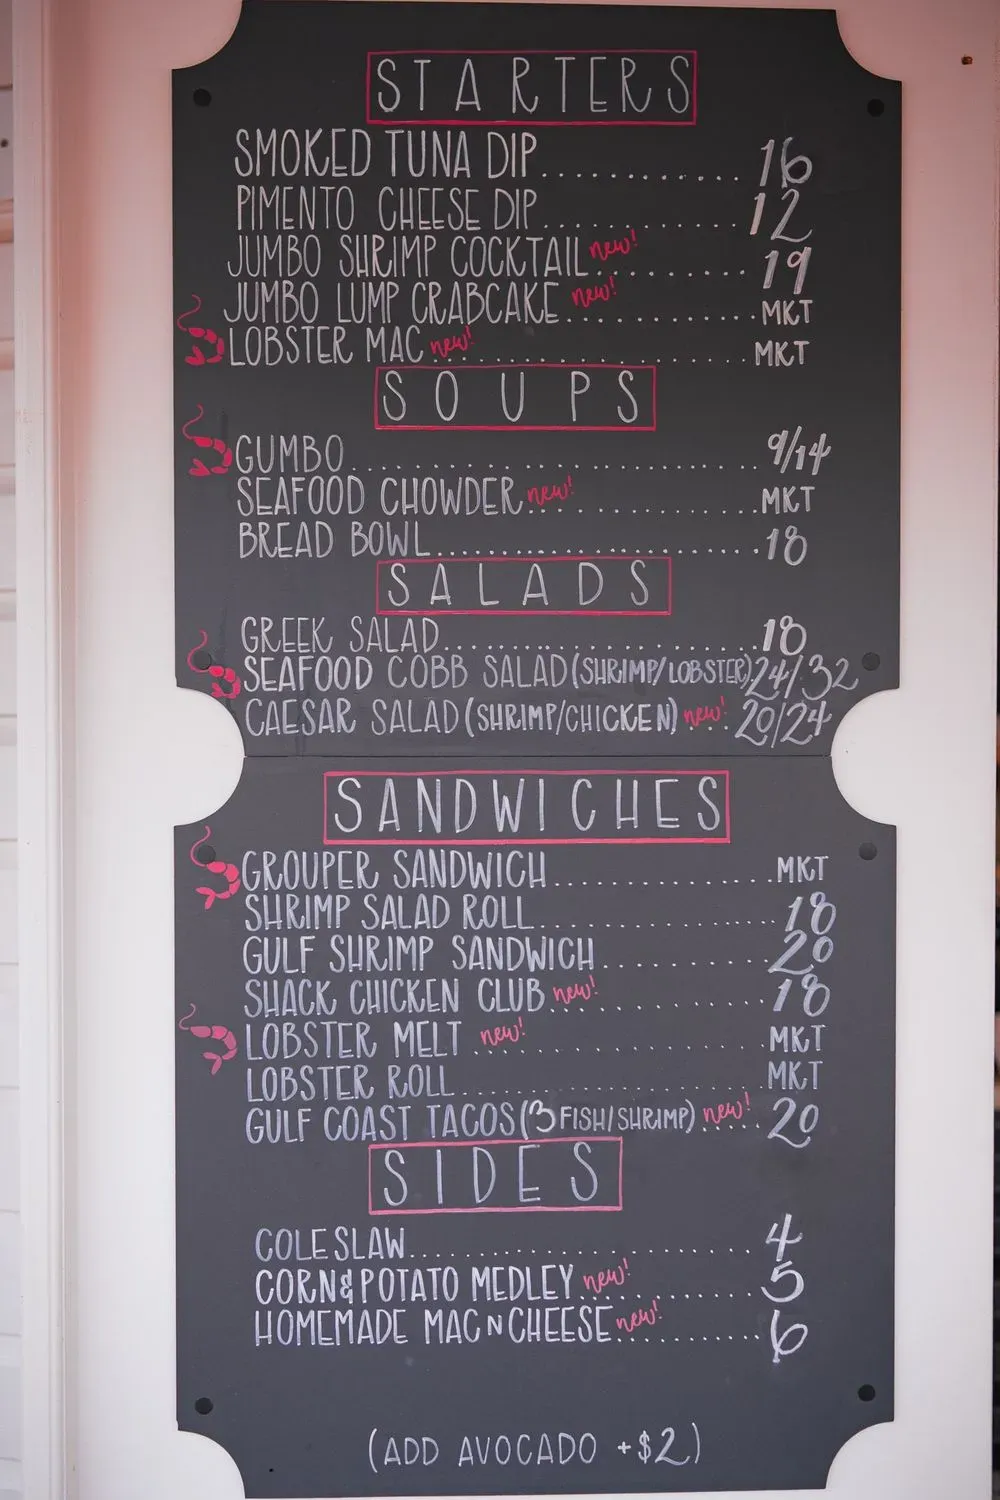 STARTERS
SMOKED TUNA DIP............ 16
PIMENTO CHEESE DIP............ 12
JUMBO SHRIMP COCKTAIL new!.......... 19
JUMBO LUMP CRABCAKE new!............ MKT
LOBSTER MAC new!.................. MKT
SOUPS
GUMBO......................... 9/14
SEAFOOD CHOWDER new!................ MKT
BREAD BOWL...................... 18
SALADS
GREEK SALAD...................... 18
SEAFOOD COBB SALAD (SHRIMP/LOBSTER) 24/32
CAESAR SALAD (SHRIMP/CHICKEN) new!... 20/24
SANDWICHES
GROUPER SANDWICH.............. MKT
SHRIMP SALAD ROLL............... 18
GULF SHRIMP SANDWICH.......... 20
SHACK CHICKEN CLUB new!........... 18
LOBSTER MELT new!................ MKT
LOBSTER ROLL..................... MKT
GULF COAST TACOS (3 FISH/SHRIMP) new!..... 20
SIDES
COLESLAW...................... 4
CORN & POTATO MEDLEY new!........... 5
HOMEMADE MAC N CHEESE new!......... 6
(ADD AVOCADO +$2)